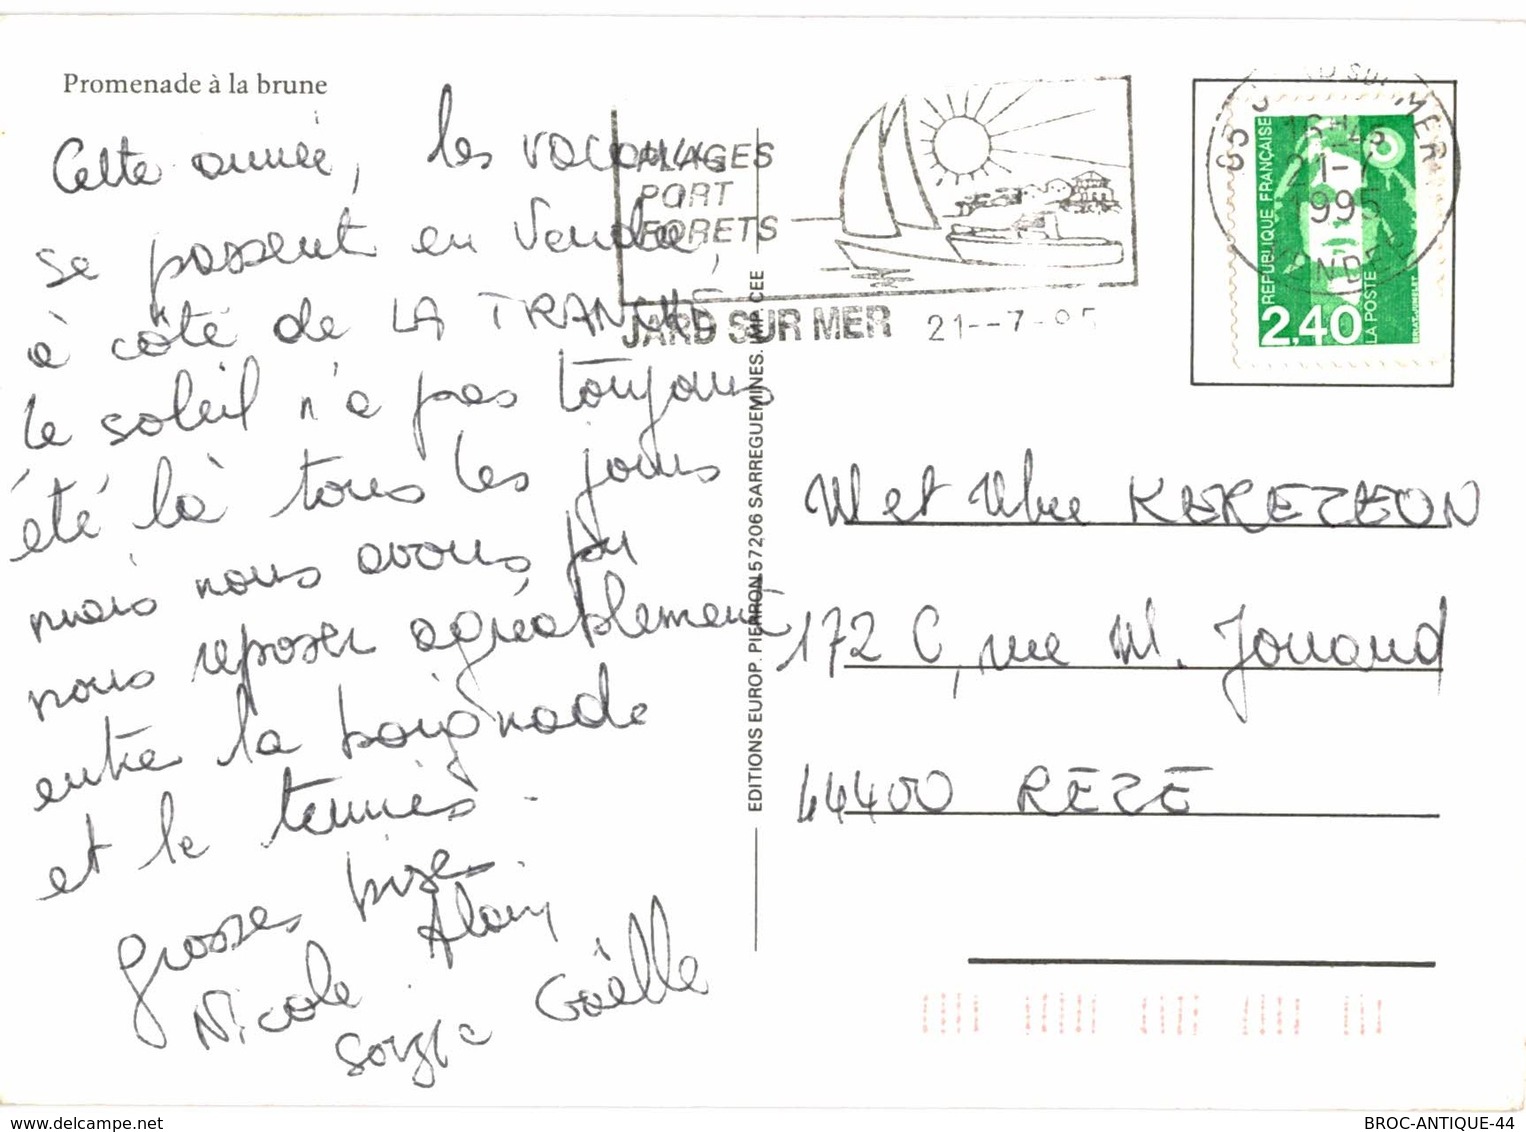 Promenade à la brune
Cette année, les vacances
se passent en Vendée,
à côté de LA TRANCHE
le soleil n'a pas toujours
été là tous les jours
mais nous avons pu
nous reposer agréablement
entre la baignade
et le tennis.
grosses bises
Alain
Nicole.
Gaëlle
PLAGES
PORT
FORETS
JARD SUR MER 21--7-95
SUR MER
85
16-45
21-7
1995
VENDEE
REPUBLIQUE FRANÇAISE
2,40
LA POSTE
EDITIONS EUROP. PIERRON 57206 SARREGUEMINES. IMP. CEE
M et Mme KEREZEON
172 C, rue M. Jouaud
44400 REZÉ
www.delcampe.net
BROC-ANTIQUE-44